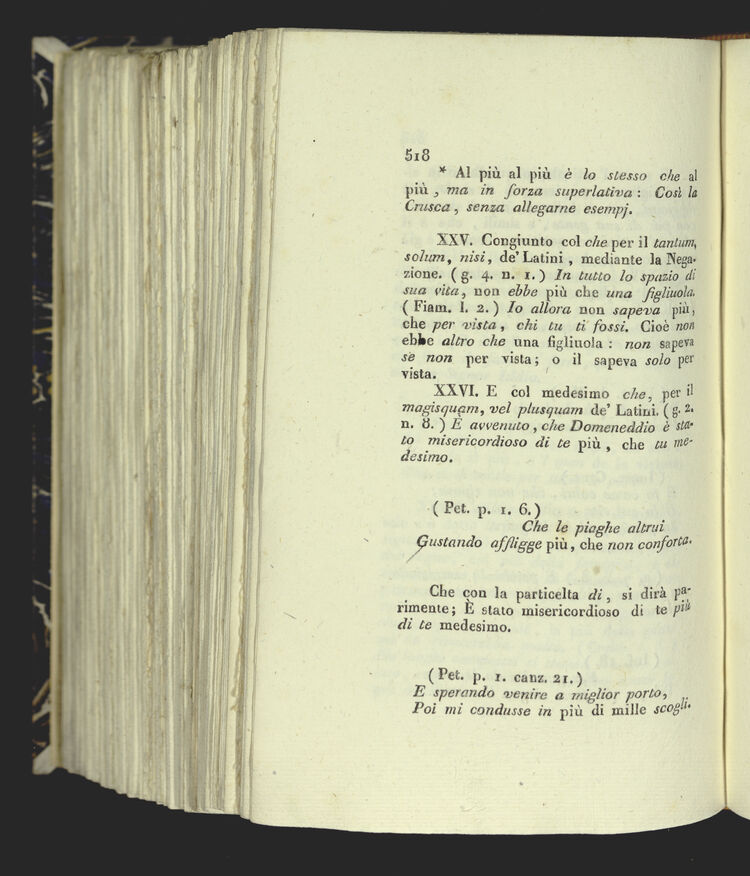 518
* Al più al più è lo stesso che al
più, ma in forza superlativa : Così la
Crusca, senza allegarne esempj.
XXV. Congiunto col che per il tantum,
solum, nisi, de' Latini, mediante la Nega-
zione. ( g. 4. n. 1. ) In tutto lo spazio di
sua vita, non ebbe più che una figliuola.
( Fiam. l. 2. ) Io allora non sapeva più,
che per vista, chi tu ti fossi. Cioè non
ebbe altro che una figliuola : non sapeva
se non per vista; o il sapeva solo per
vista.
XXVI. E col medesimo che, per il
magisquam, vel plusquam de' Latini. ( g. 2.
n. 8. ) È avvenuto, che Domeneddio è sta-
to misericordioso di te più, che tu me-
desimo.
( Pet. p. 1. 6.)
Che le piaghe altrui
Gustando affligge più, che non conforta.
Che con la particelta di, si dirà pa-
rimente; È stato misericordioso di te più
di te medesimo.
( Pet. p. 1. canz. 21. )
E sperando venire a miglior porto,
Poi mi condusse in più di mille scogli.